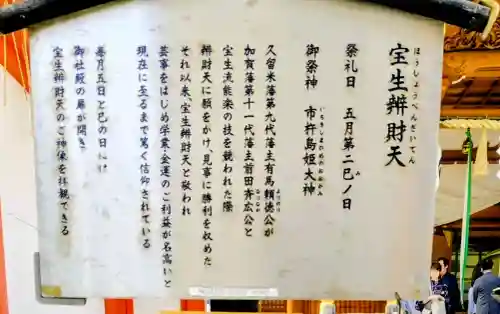 宝生辨財天
ほうしょうべんざいてん
祭礼日 五月第二巳ノ日
み
御祭神 市杵島姫大神
いちきしまひめおおかみ
久留米藩第九代藩主有馬頼徳公が
よりのり
加賀藩第十一代藩主前田斉広公と
なりなが
宝生流能楽の技を競われた際
辨財天に願をかけ、見事に勝利を収めた
それ以来、宝生辨財天と敬われ
芸事をはじめ学業・金運のご利益が名高いと
現在に至るまで篤く信仰されている
毎月五日と巳の日には
御社殿の扉が開き
宝生辨財天のご神像を拝観できる